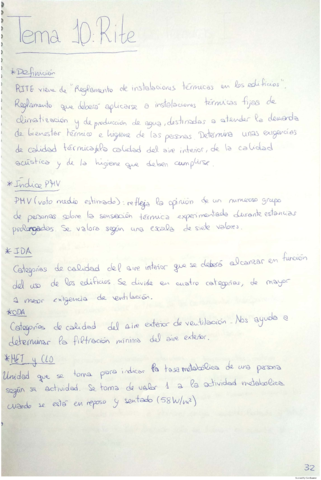 Tema 10. Rite
* Definición
RITE viene de "Reglamento de instalaciones térmicas en los edificios".
Reglamento que deberá aplicarse a instalaciones térmicas fijas de
climatización y de producción de agua, destinadas a atender la demanda
de bienestar térmico e higiene de las personas. Determina unas exigencias
de calidad térmica, la calidad del aire interior, de la calidad
acústica y de la higiene que deben cumplirse
* Índice PMV
PMV (voto medio estimado): refleja la opinión de un numeroso grupo
de personas sobre la sensación térmica experimentada durante estancias
prolongadas. Se valora según una escala de siete valores.
* IDA
Categorías de calidad del aire interior que se deberá alcanzar en función
del uso de los edificios. Se divide en cuatro categorías, de mayor
a menor exigencia de ventilación.
* ODA
Categorías de calidad del aire exterior de ventilación. Nos ayuda a
determinar la filtración mínima del aire exterior.
* MET y CLO
Unidad que se toma para indicar la tasa metabólica de una persona
según su actividad. Se toma de valor 1 a la actividad metabólica
cuando se está en reposo y sentado (58W/m²)
32